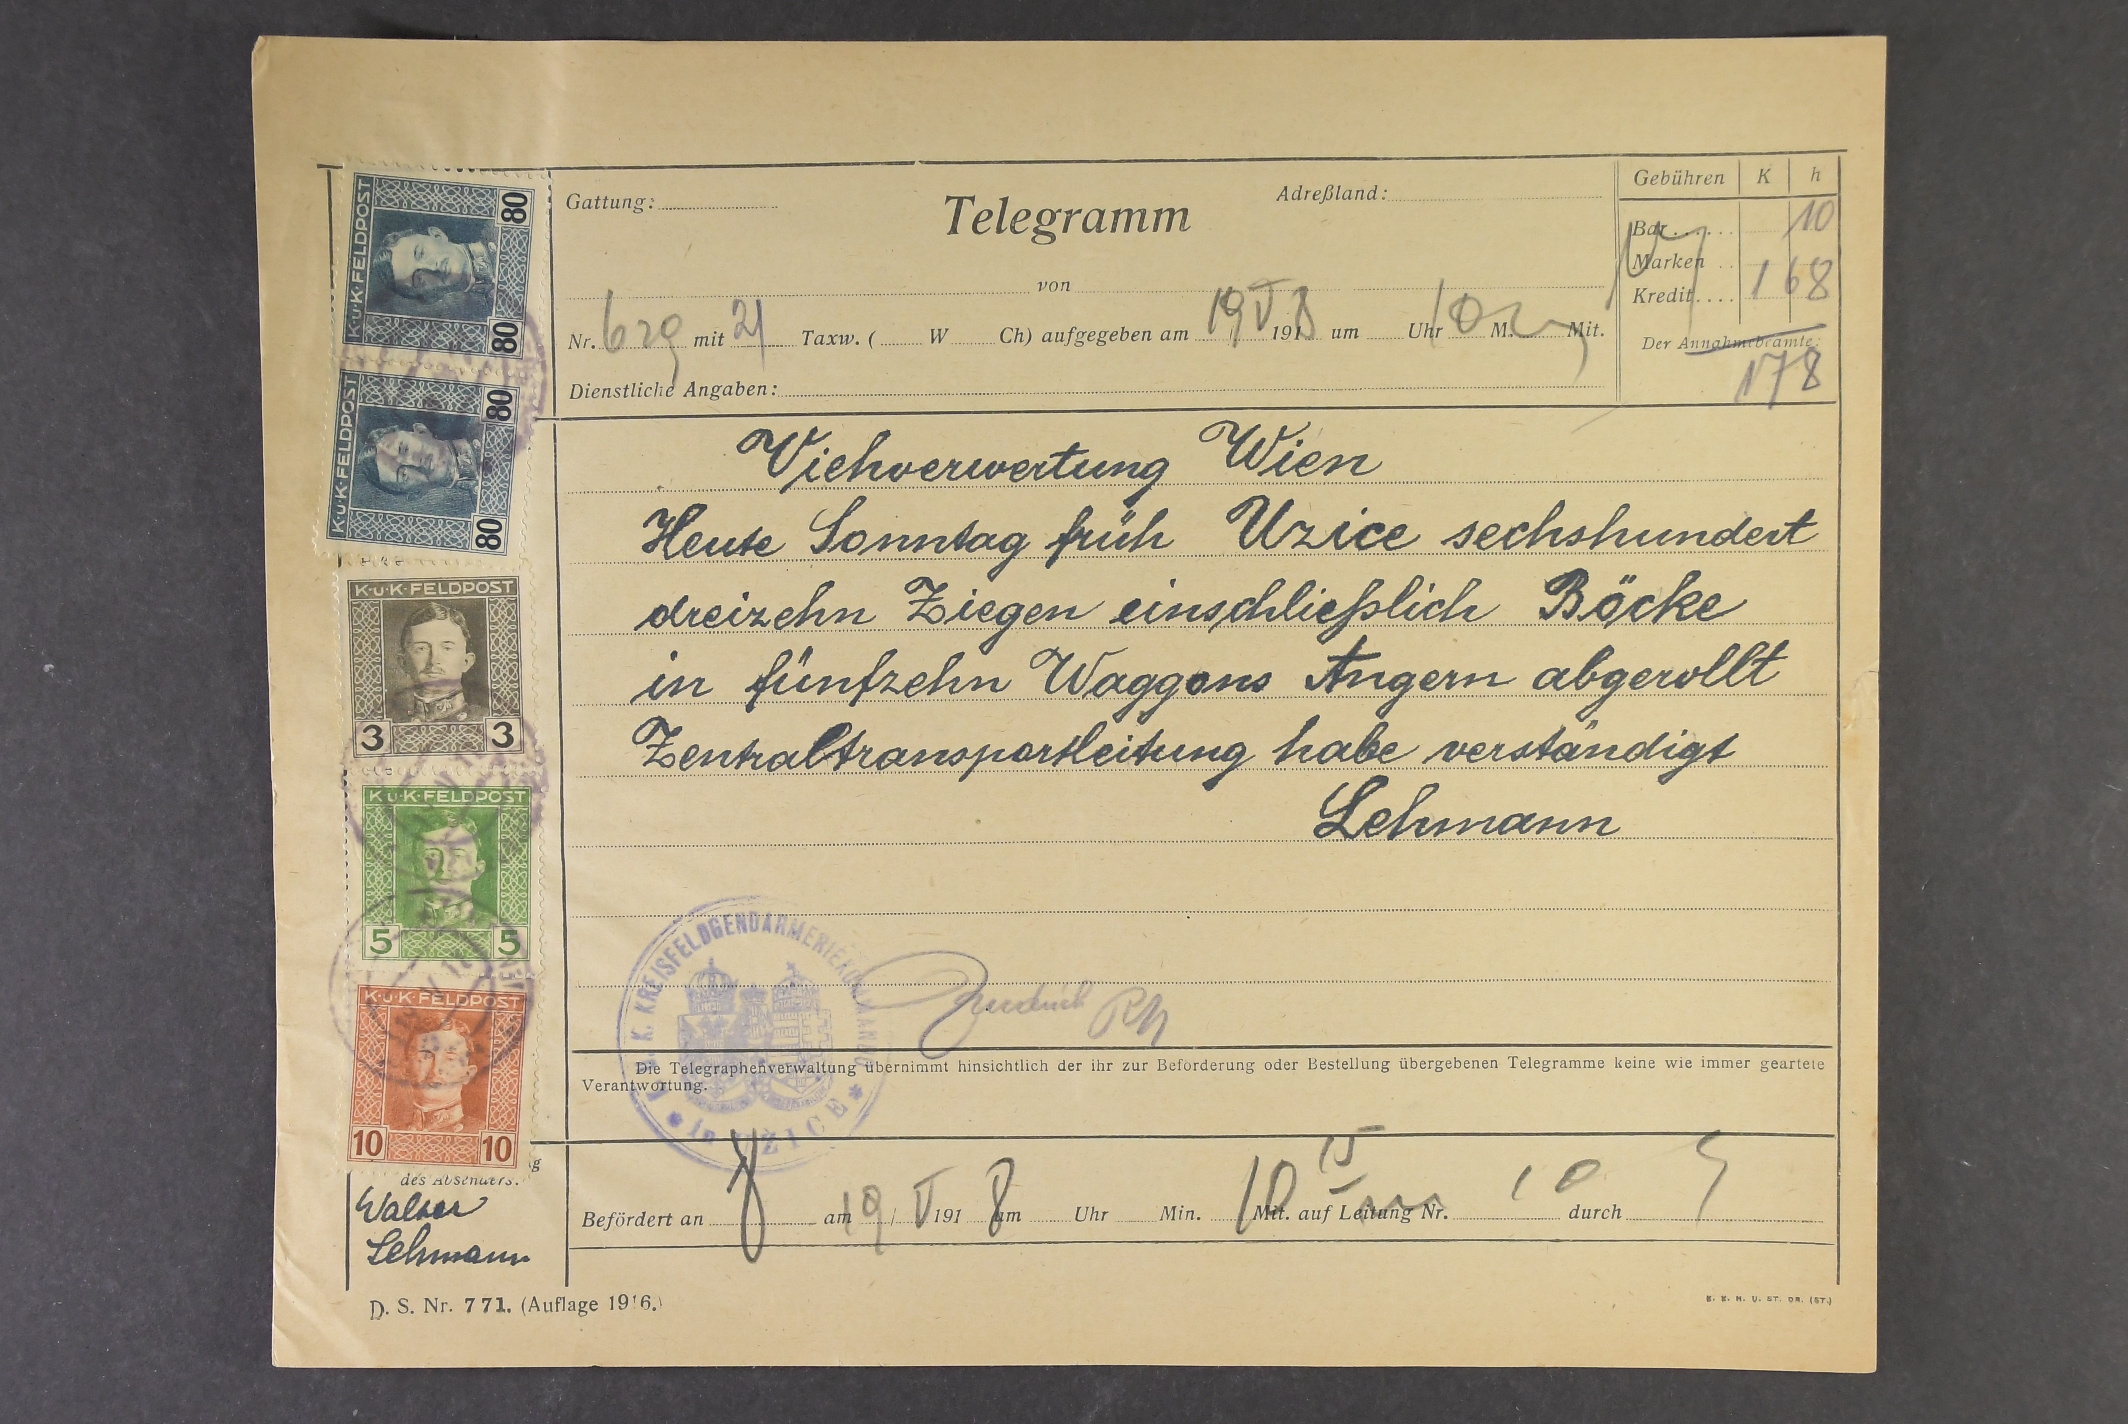 Gattung:
Telegramm
Adreßland:
Gebühren K h
Bar 10
Marken 1 68
Kredit
von
Nr. 629 mit 21 Taxw. ( W Ch) aufgegeben am 19/V 1918 um Uhr 10 M. Mit.
Der Annahmebeamte:
178
Dienstliche Angaben:
Viehverwertung Wien
Heute Sonntag früh Uzice sechshundert
dreizehn Ziegen einschließlich Böcke
in fünfzehn Waggons Angern abgerollt
Zentraltransportleitung habe verständigt
Lehmann
K.u.K. KREISFELDGENDARMERIEKOMMANDO
* in UZICE *
Die Telegraphenverwaltung übernimmt hinsichtlich der ihr zur Beförderung oder Bestellung übergebenen Telegramme keine wie immer geartete
Verantwortung.
Befördert an am 19/V 1918 um Uhr Min. 10 15 Mit. auf Leitung Nr. 10 durch
K.u.K.FELDPOST 80 80
K.u.K.FELDPOST 80 80
K.u.K.FELDPOST
3 3
K.u.K.FELDPOST
5 5
K.u.K.FELDPOST
10 10
des Absenders.
Walter
Lehmann
D. S. Nr. 771. (Auflage 1916.)